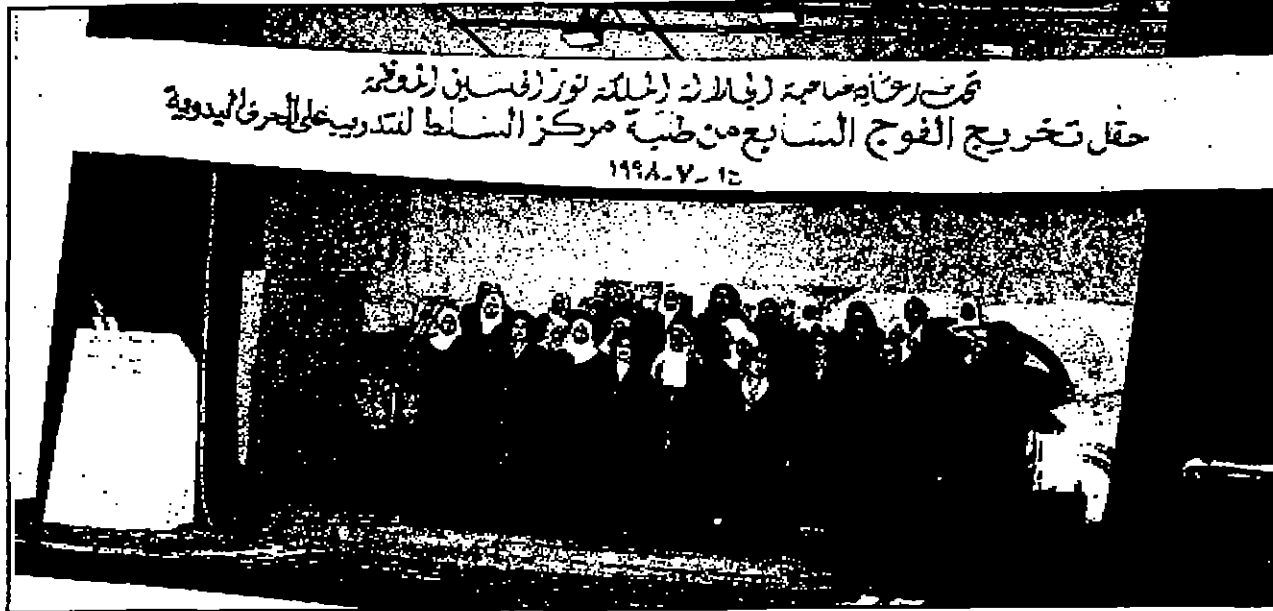 تحت رعاية صاحبة الجلالة الملكة نور الحسين المعظمة
حفل تخريج الفوج السابع من طلبة مركز السلط للتدريب على الحرف اليدوية
١٩٩٨-٧-١٥